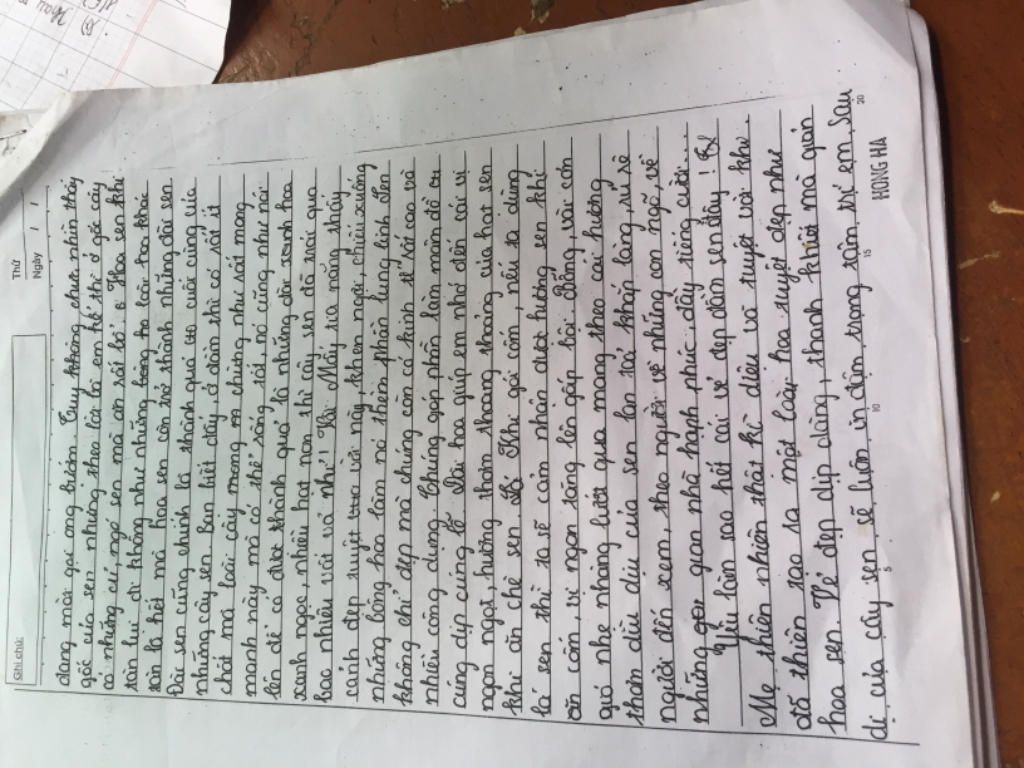 Ghi chú:
Thứ
Ngày / /
đang mải gọi ong bướm. Tuy không chưa nhìn thấy
gốc của sen nhưng theo lời bà em kể thì ở gốc cây
có những củ, ngó sen mà ăn rất bổ. Hoa sen khi
tàn lụi đi không như những bông hoa loài hoa khác
tàn là hết mà hoa sen còn trở thành những đài sen
Đài sen cũng chính là thành quả cuối cùng của
những cây sen. Ban hút đấy, ở đầm thì có rất ít
chất mà loài cây mong m chúng như rất mong
manh này mà có thể sống tốt, nó cũng như nói
lên để có được thành quả là những đài xanh hạt
xanh ngọc, nhiều hạt non thì cây sen đã trải qua
bao nhiêu vất vả nhỉ! Mấy tia nắng thấy
cảnh đẹp tuyệt vời này, khen ngợi, chiếu xuống
những bông hoa làm nó thêm phần lung linh. Sen
không chỉ đẹp mà chúng còn có kinh tế rất cao và
nhiều công dụng. Chúng góp phần làm mâm đồ
cúng dịp cúng lễ. Đài hoa giúp em nhớ đến cái vị
ngon ngọt, hương thơm thoang thoảng của hạt sen
khi ăn chè sen. Khi gói cốm, nếu ta dùng
lá sen thì ta sẽ cảm nhận được hương sen khi
ăn cốm, vị ngon tăng lên gấp bội. Bỗng, vài cơn
gió nhẹ nhàng lướt qua mang theo cái hương
thơm dìu dịu của sen lan toả khắp làng, rủ rê
người đến xem, theo người về những con ngõ, về
những góc quan nhà hạnh phúc, đầy tiếng cười...
Yêu làm sao hết cái vẻ đẹp đầm sen đây!
Mẹ thiên nhiên thật kì diệu và tuyệt vời khi
đã thiên tạo ra một loài hoa tuyệt đẹp như
hoa sen. Vẻ đẹp dịp dàng, thanh khiết mà giản
dị của cây sen, sẽ luôn in đậm trong tâm trí em. Sau
5 10 15 20
HONG HA